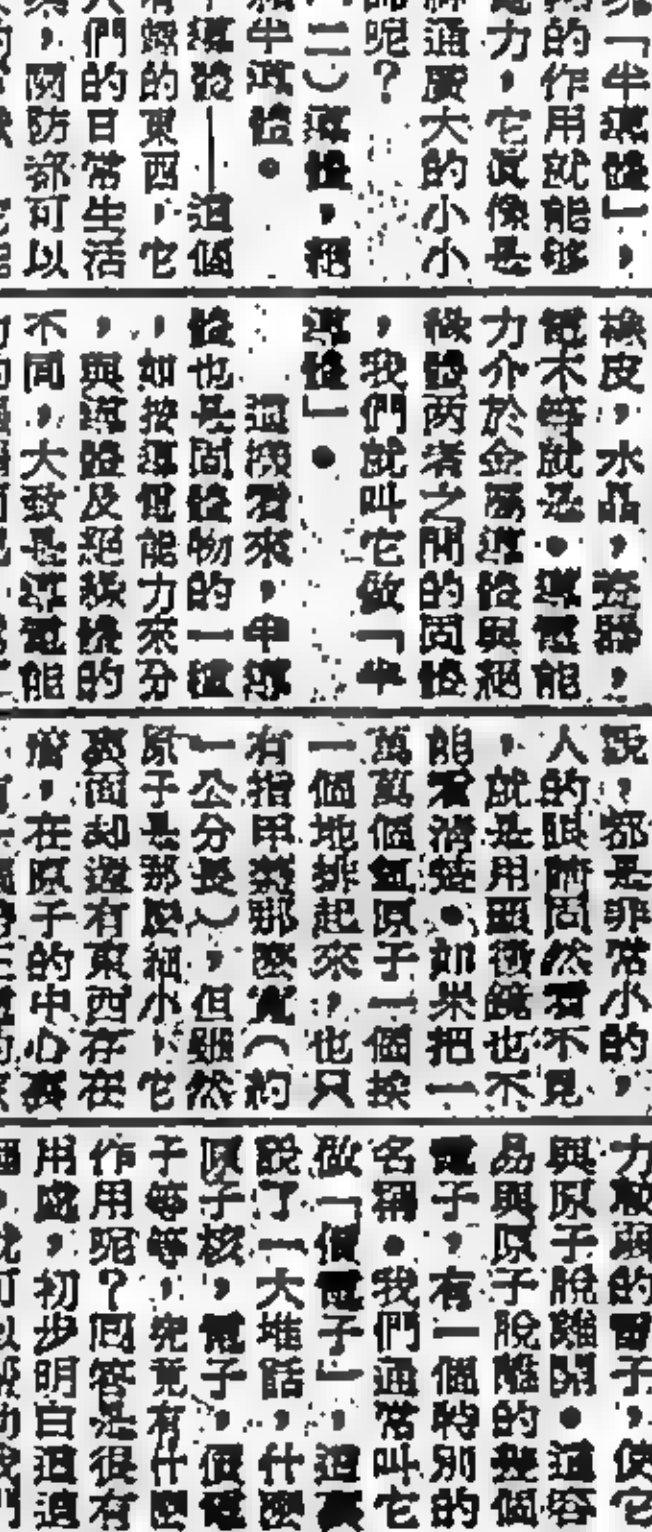 「牛導體」，
的作用就能够
力，它真像是
通廣大的小小
呢？
（二）導體，絕
牛導體●
導體──這個
的東西，它
人們的日常生活
，國防都可以
橡皮，水晶，瓷器，
電木等就是●導電能
力介於金屬導體與絕
緣體两者之間的固體
，我們就叫它做「半
導體」●
這樣看來，半導
體也是固體物的一種
，如按導電能力來分
，與導體及絕緣體的
不同，大致是導電能
說，都是非常小的，
人的眼睛固然看不見
，就是用顯微鏡也不
能看清楚●如果把一
萬萬個氫原子一個挨
一個地排起來，也只
有指甲蓋那麼寬（約
一公分長），但雖然
原子是那麼細小，它
裏面却還有東西存在
着，在原子的中心裏
力較弱的電子，使它
與原子脫離開●這容
易與原子脫離的整個
電子，有一個特別的
名稱●我們通常叫它
做「價電子」，這裏
說了一大堆話，什麼
原子核，電子，價電
子等等，究竟有什麼
作用呢？回答是很有
用處，初步明白這